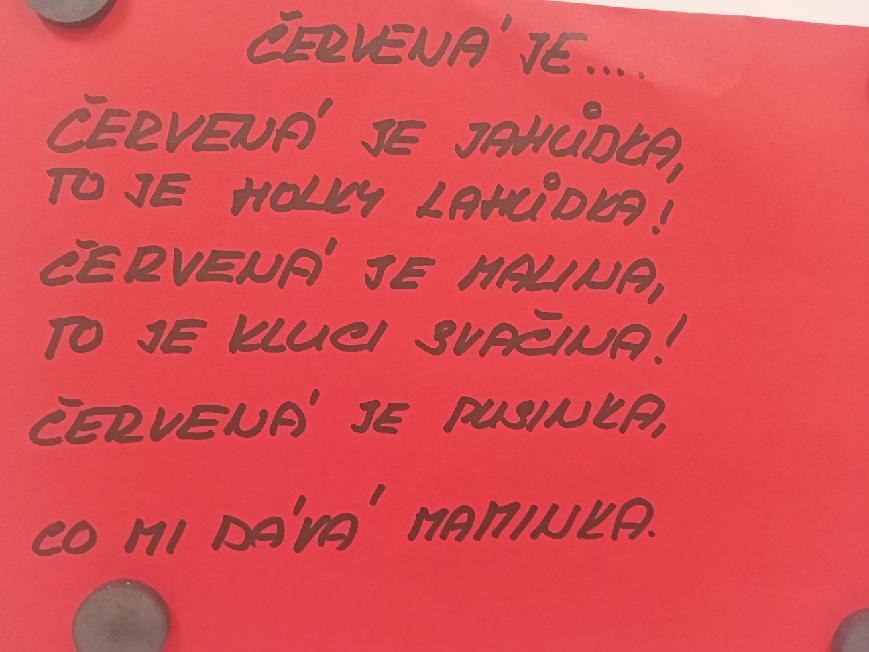 ČERVENÁ JE....
ČERVENÁ JE JAHŮDKA,
TO JE HOLKY LAHŮDKA!
ČERVENÁ JE MALINA,
TO JE KLUCI SVAČINA!
ČERVENÁ JE PUSINKA,
CO MI DÁVÁ MAMINKA.